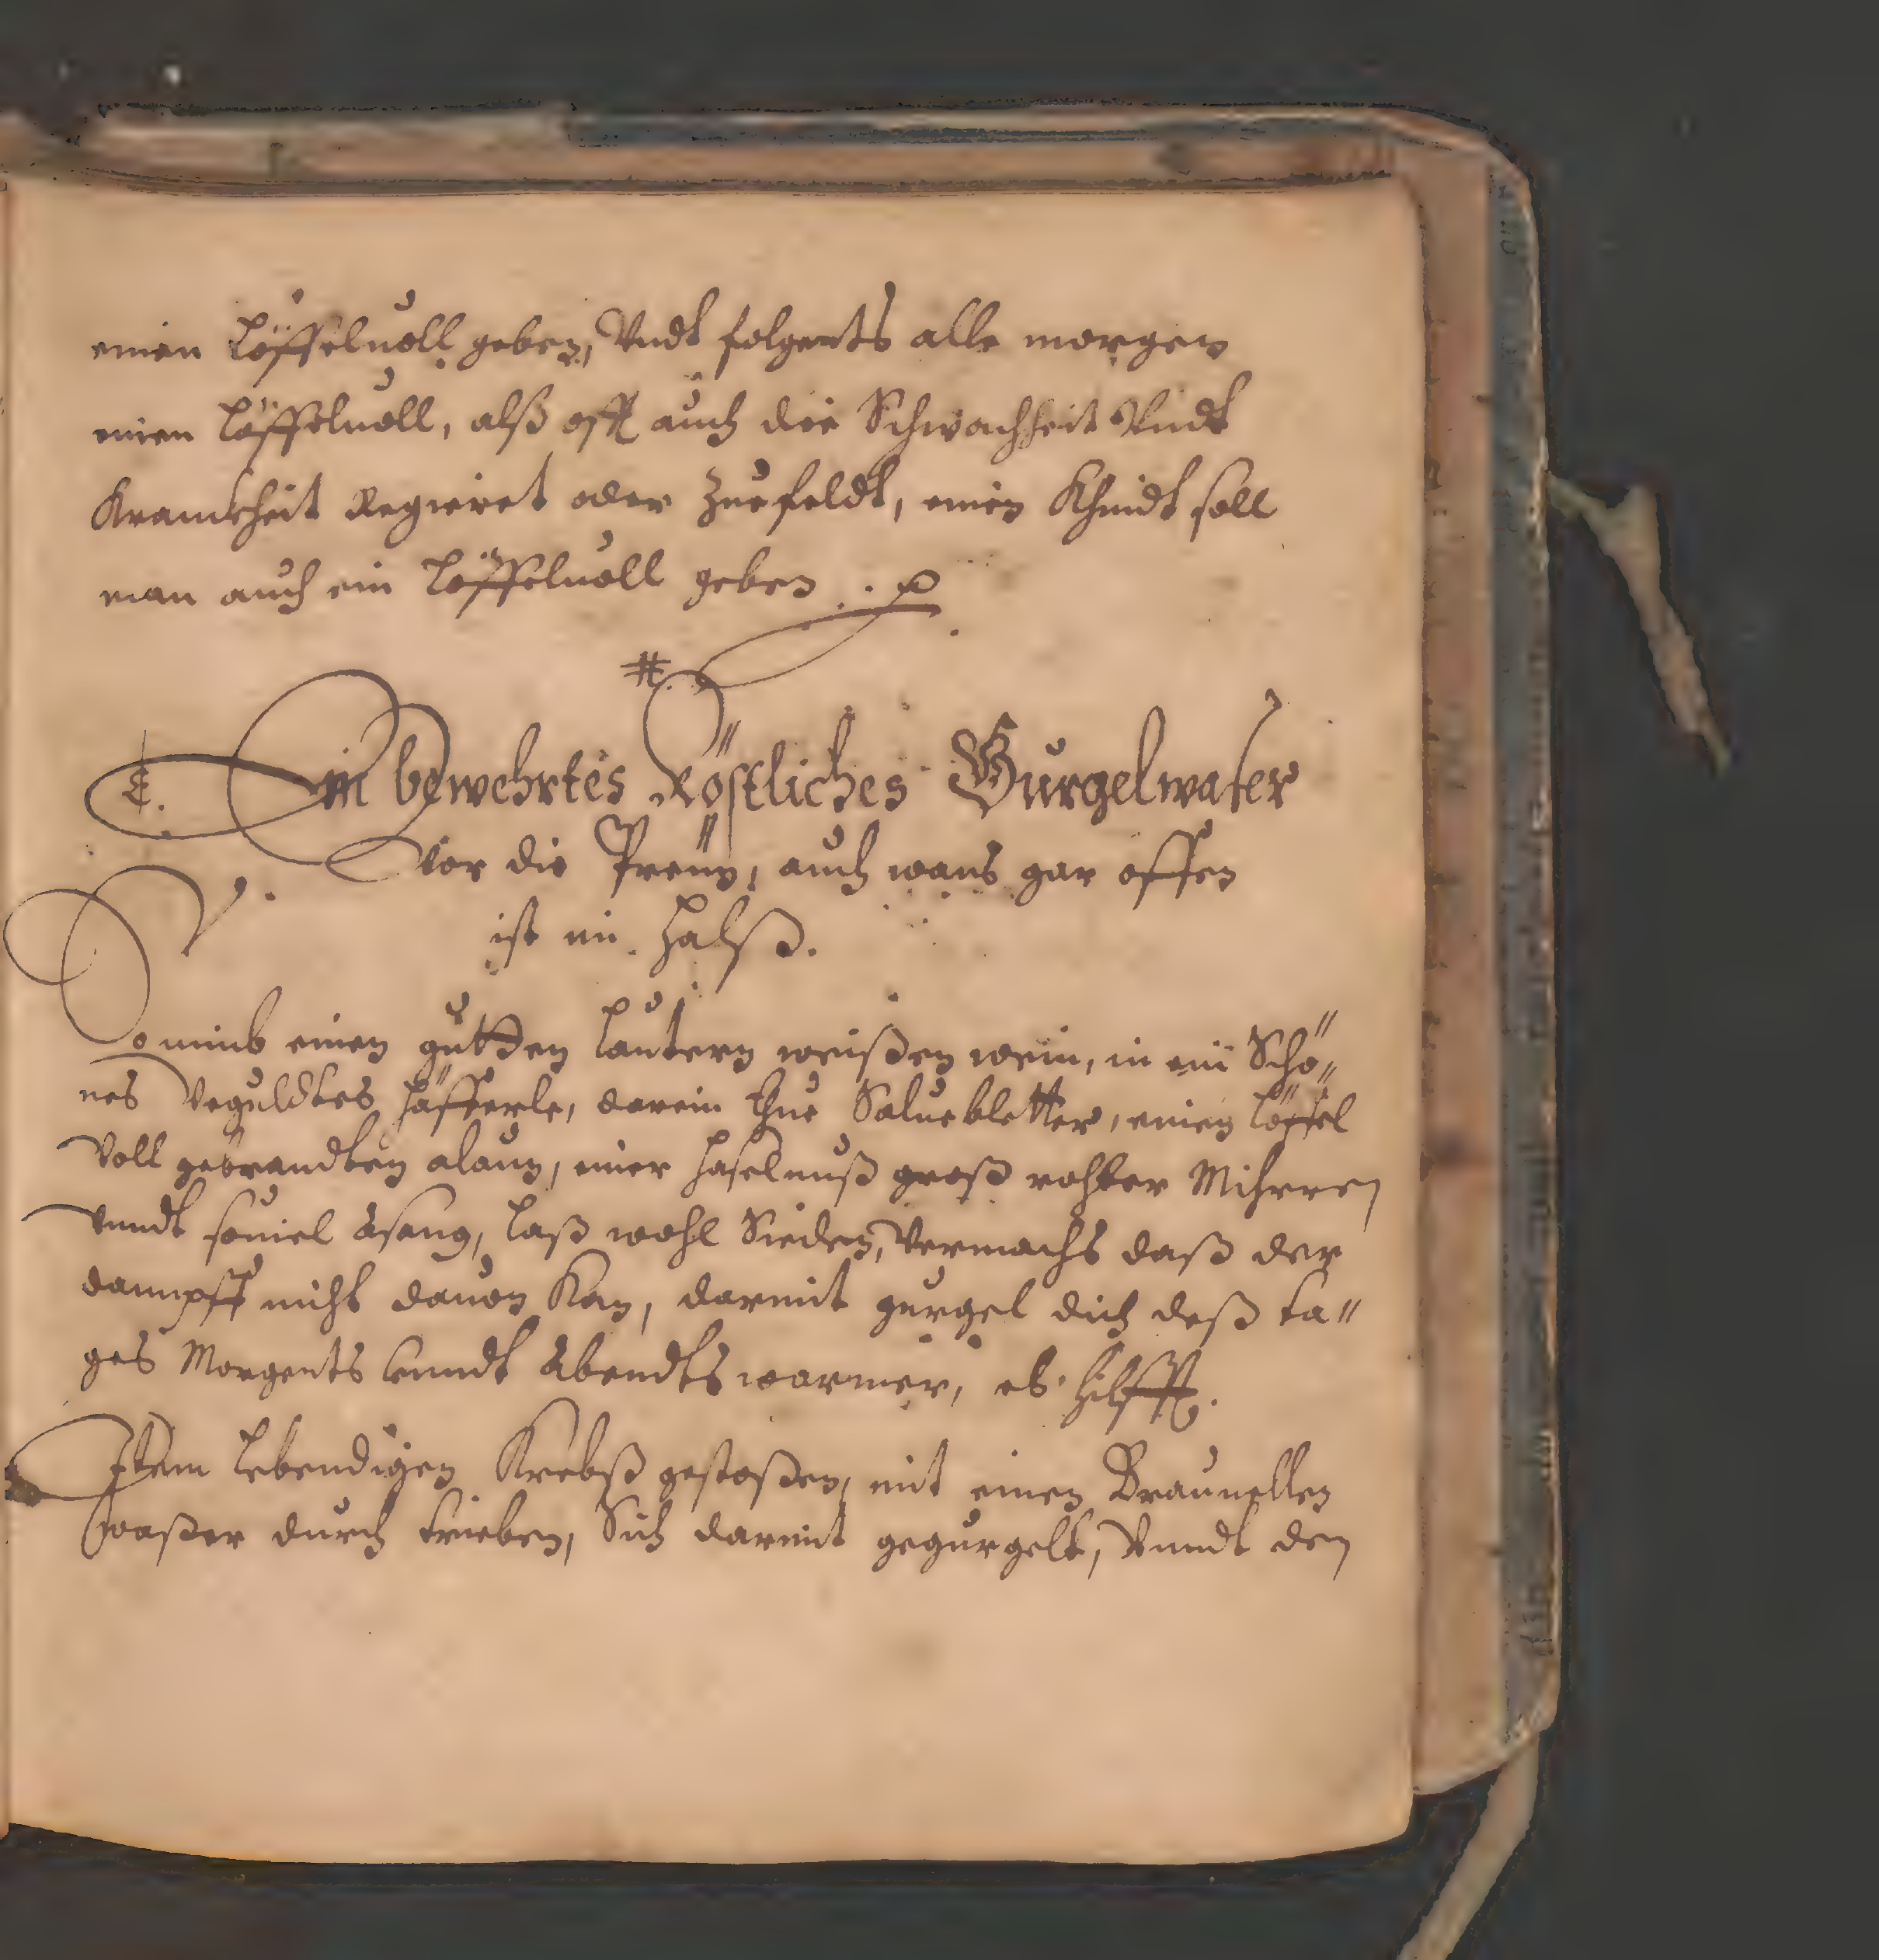 einen Löffeluoll geben, Vndt folgents alle morgen
einen Löffeluoll, alß offt auch die Schwachheit Vndt
Kranckheit Regieret oder Zuefeldt, einen Khindt soll
man auch ein Löffeluoll geben
#
Ein bewehrtes Köstliches Gurgelwaser
Vor die Preün, auch wans gar offen
ist im Halß.
So nimb einen gutten Lautern weißen wein, in ein Schö"
nes Veguldtes Häfferle, darein thue Saluebletter, einen Löffel
Voll gebrandten alaun, einer Haselnuß groß rohter Mihrren
Vnndt souiel Asang, Laß wohl Sieden, Vermachs daß der
dampff nicht dauon Kan, darmit gurgel dich deß ta"
ges Morgents Vnndt Abendts warmer, es hilfft.
Item Lebendigen Krebß gestoßen, mit einen Braunellen
waßer durch trieben, Sich darmit gegurgelt, Vnndt den